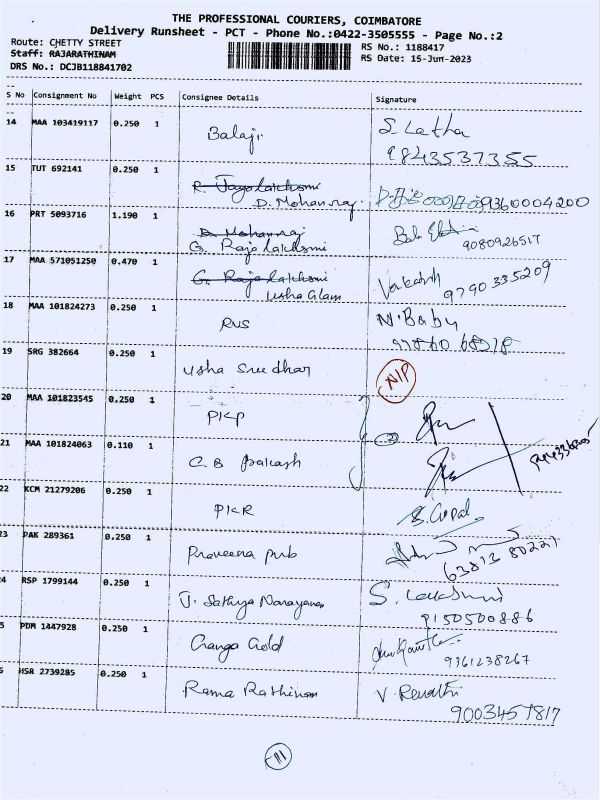 THE PROFESSIONAL COURIERS, COIMBATORE
Delivery Runsheet - PCT - Phone No.:0422-3505555 - Page No.:2
Route: CHETTY STREET RS No.: 1188417
Staff: RAJARATHINAM RS Date: 15-Jun-2023
DRS No.: DCJB118841702
S No Consignment No Weight PCS Consignee Details Signature
14 MAA 103419117 0.250 1 Balaji S. Latha
9843537355
15 TUT 692141 0.250 1
D. Mohanraj 9360004200
16 PRT 5093716 1.190 1 D. Mohanraj
G. Rajalakhsmi 9080926517
17 MAA 571051250 0.470 1 G. Rajalakhsmi Venkatesh
Usha Glam 9790335209
18 MAA 101824273 0.250 1 RVS N. Baby
19 SRG 382664 0.250 1 Usha Sridhar N/P
20 MAA 101823545 0.250 1 PKP
21 MAA 101824063 0.110 1 C.B Prakash
22 KCM 21279206 0.250 1 PKR S. Gopal
23 PAK 289361 0.250 1 Praveena pub
63813 80221
24 RSP 1799144 0.250 1 J. Sathya Narayanan S. Lakshmi
9150500886
5 PDM 1447928 0.250 1 Ganga Gold
9361238267
HSR 2739285 0.250 1 Rama Rathinam V. Revathi
9003457817
111